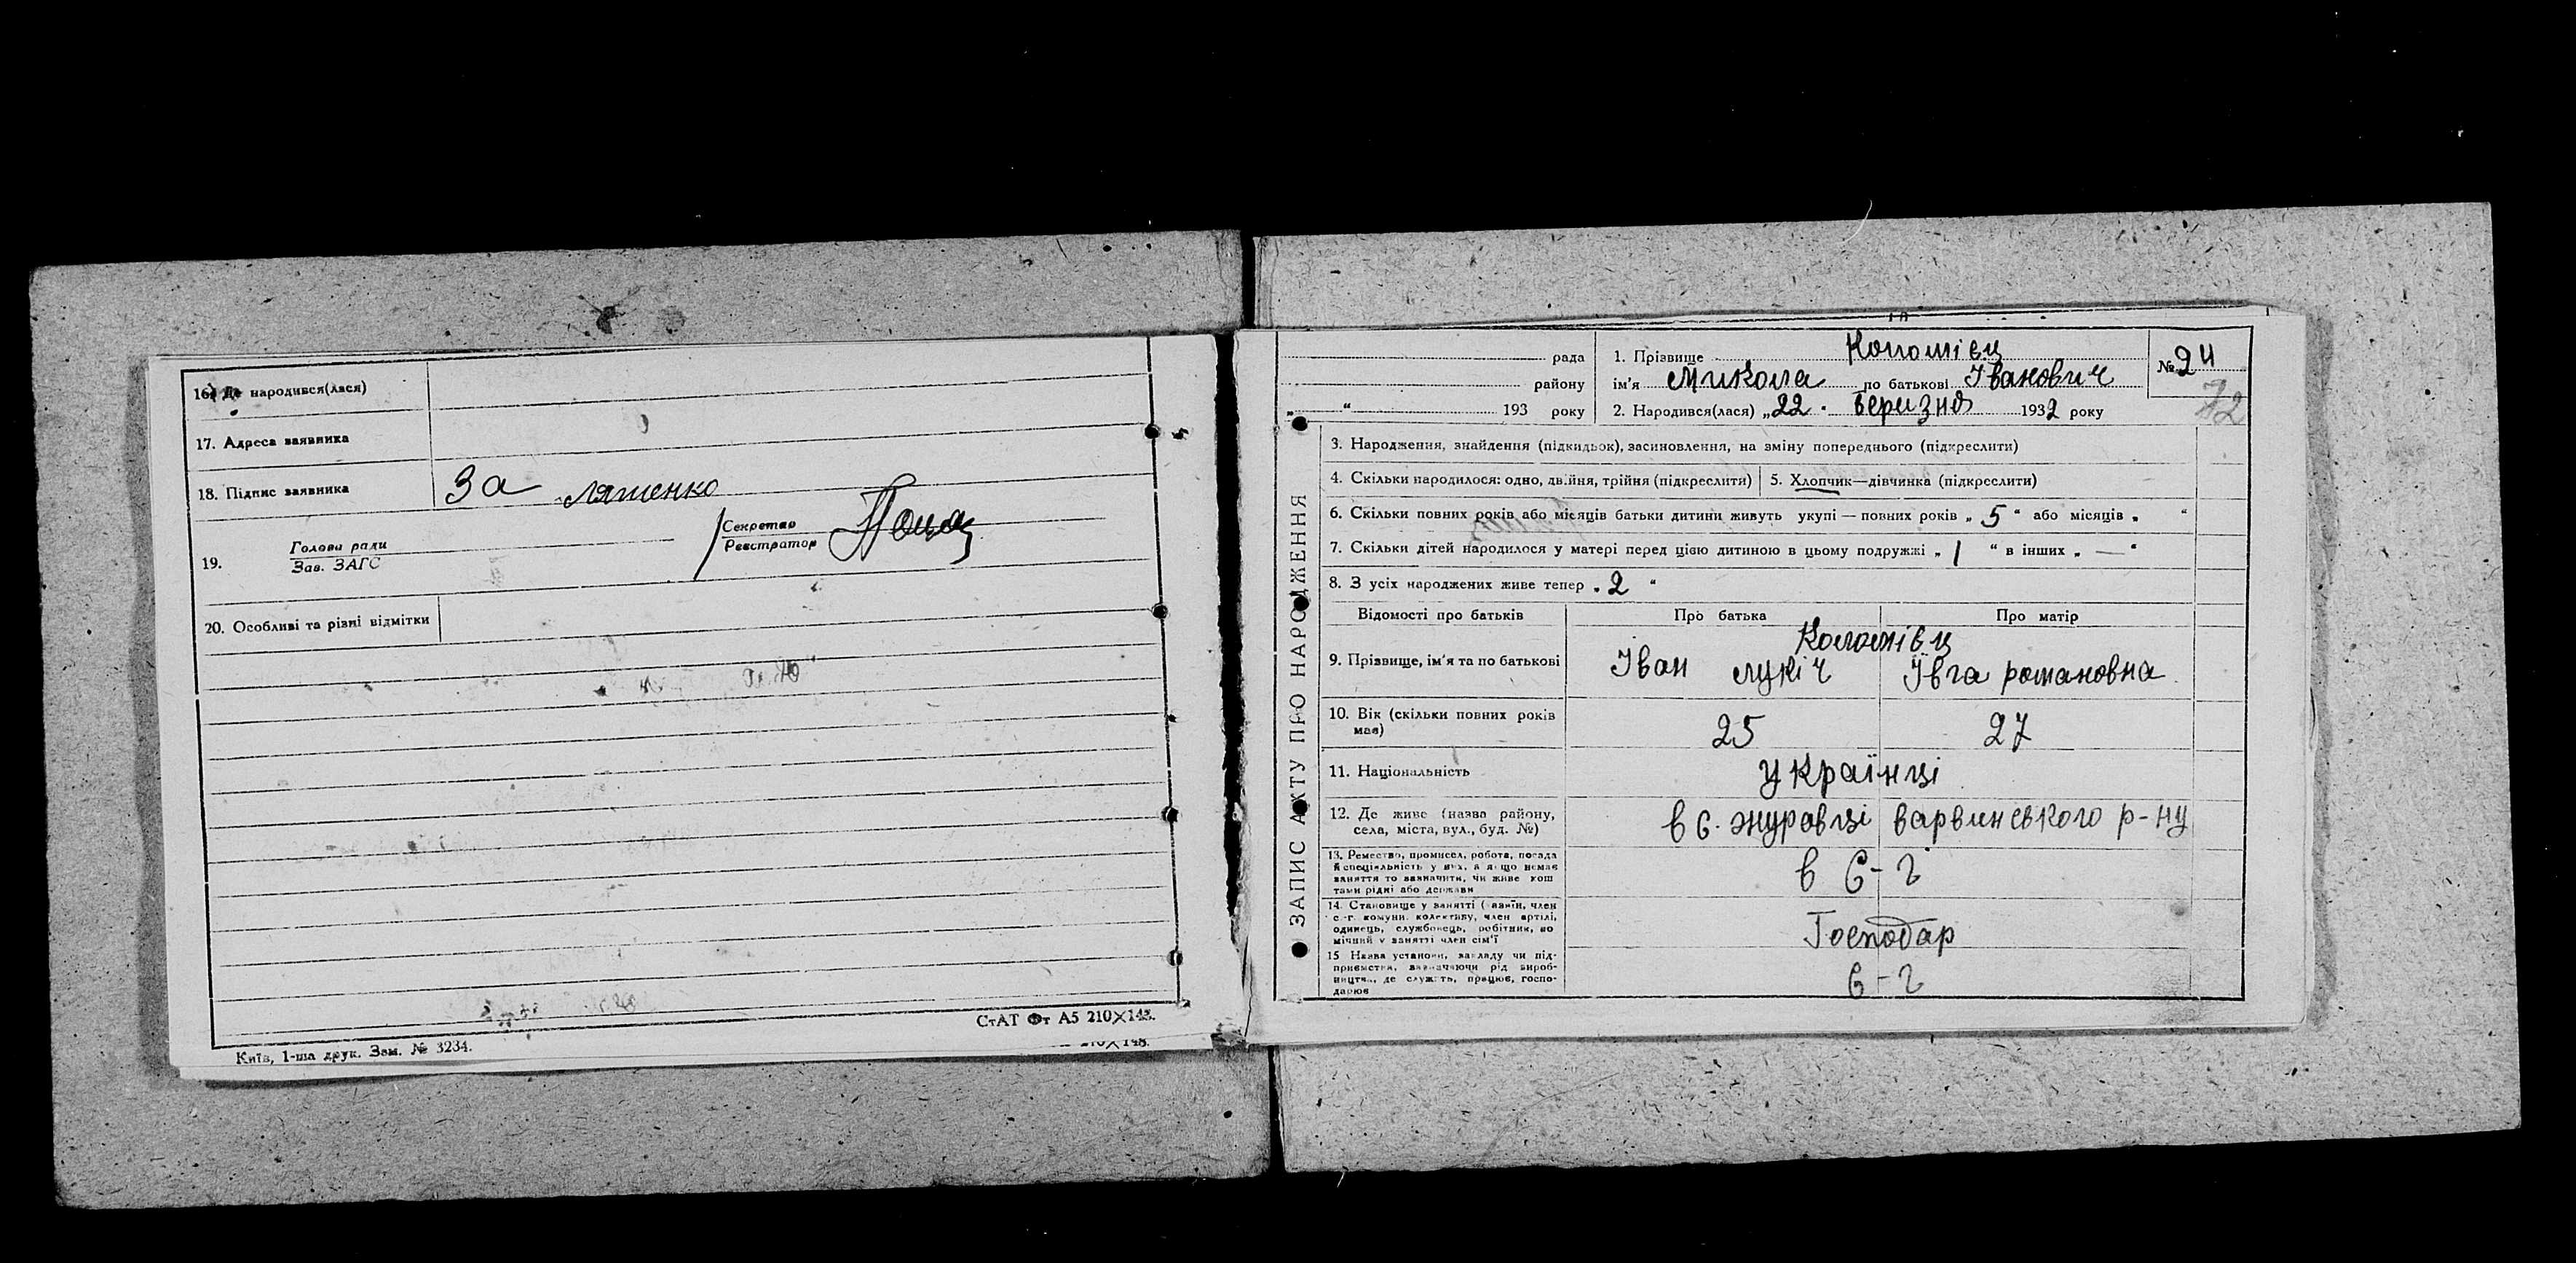 16. Де народився(лася)
17. Адреса заявника
18. Підпис заявника За Ляшенко
19. Голова ради
Зав. ЗАГС
Секретар
Реєстратор
20. Особливі та різні відмітки
СтАТ Фт А5 210×148.
Київ, 1-ша друк. Зам. № 3234.
210×148.
ЗАПИС АКТУ ПРО НАРОДЖЕННЯ
рада
району
„ “ 193 року
1. Прізвище Коломієц
ім'я Микола по батькові Іванович
№ 24
72
2. Народився(лася) „22. березня 1932 року
3. Народження, знайдення (підкидьок), засиновлення, на зміну попереднього (підкреслити)
4. Скільки народилося: одно, двійня, трійня (підкреслити) 5. Хлопчик—дівчинка (підкреслити)
6. Скільки повних років або місяців батьки дитини живуть укупі — повних років „ 5 “ або місяців „ “
7. Скільки дітей народилося у матері перед цією дитиною в цьому подружжі „ 1 “ в інших „ — “
8. З усіх народжених живе тепер „ 2 “
Відомості про батьків Про батька Про матір
Коломієц
9. Прізвище, ім'я та по батькові Іван лукіч Ївга романовна
10. Вік (скільки повних років
має) 25 27
11. Національність українці
12. Де живе (назва району,
села, міста, вул., буд. №) в с. журавці варвинського р-ну
13. Ремество, промисел, робота, посада
й спеціяльність у них, а якщо немає
заняття то зазначити, чи живе кош
тами рідні або держави
в с-г
14. Становище у занятті (хазяїн, член
с.-г. комуни, колективу, член артілі,
одинець, службовець, робітник, по
мічний у занятті член сім'ї
Господар
15 Назва установи, закладу чи під-
приємства, зазначаючи рід вироб-
ництва, де служить, працює, госпо-
дарює
с-г